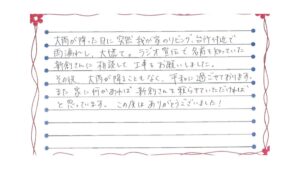 大雨が降った日に突然我が家のリビング、台所付近で
雨漏れし、大慌て。ラジオ宣伝で名前を知っていた
新創さんに相談して工事をお願いしました。
その後、大雨が降ることもなく、平和に過ごせております。
また家に何かあれば新創さんを頼らせていただければ
と思っています。この度はありがとうございました！